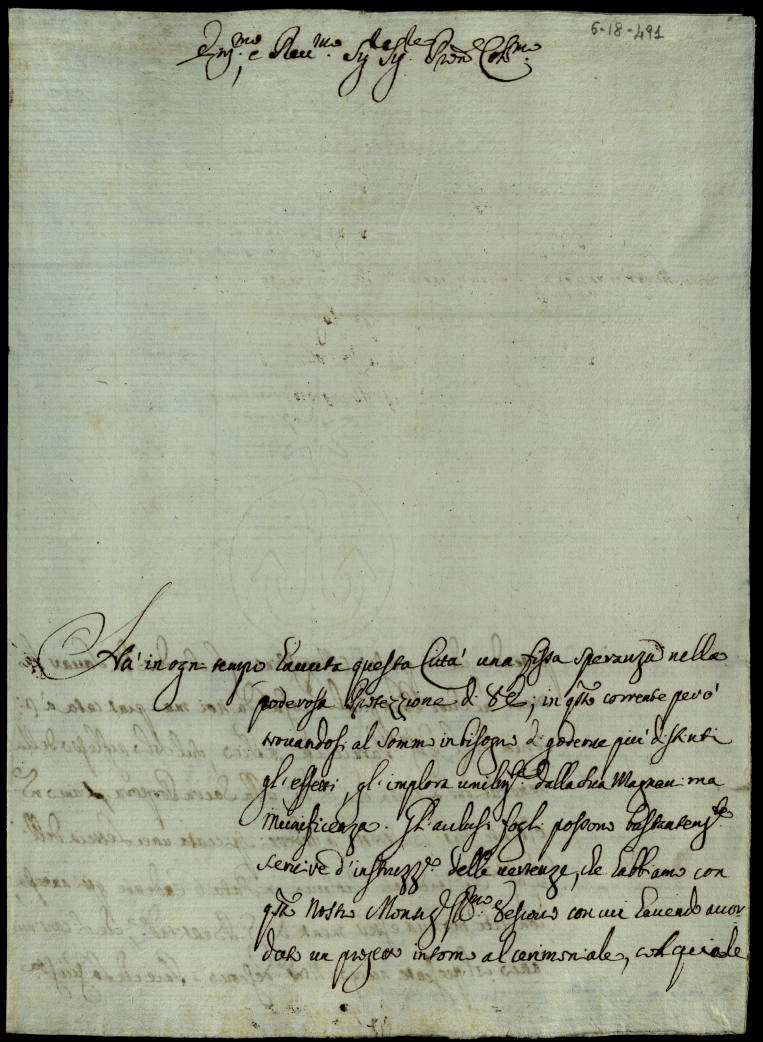 6-18-491
Em.mo e Rev.mo Sig.r Sig.r Pron.e Col.mo
Hà in ogni tempo havuta questa Città una fissa speranza nella
poderosa Protezzione di VE; in q.to corrente però
trovandosi al sommo in bisogno di goderne più distinti
gl'effetti, gl'implora umilm.te dalla sua Magnanima
Munificenza. Gl'aclusi fogli possono bastantem.te
servire d'instruzz.e delle vertenze, che habbiamo con
q.to Nostro Monsig.r Vescovo con cui havendo accor
dato un progetto intorno al cerimoniale, col quale